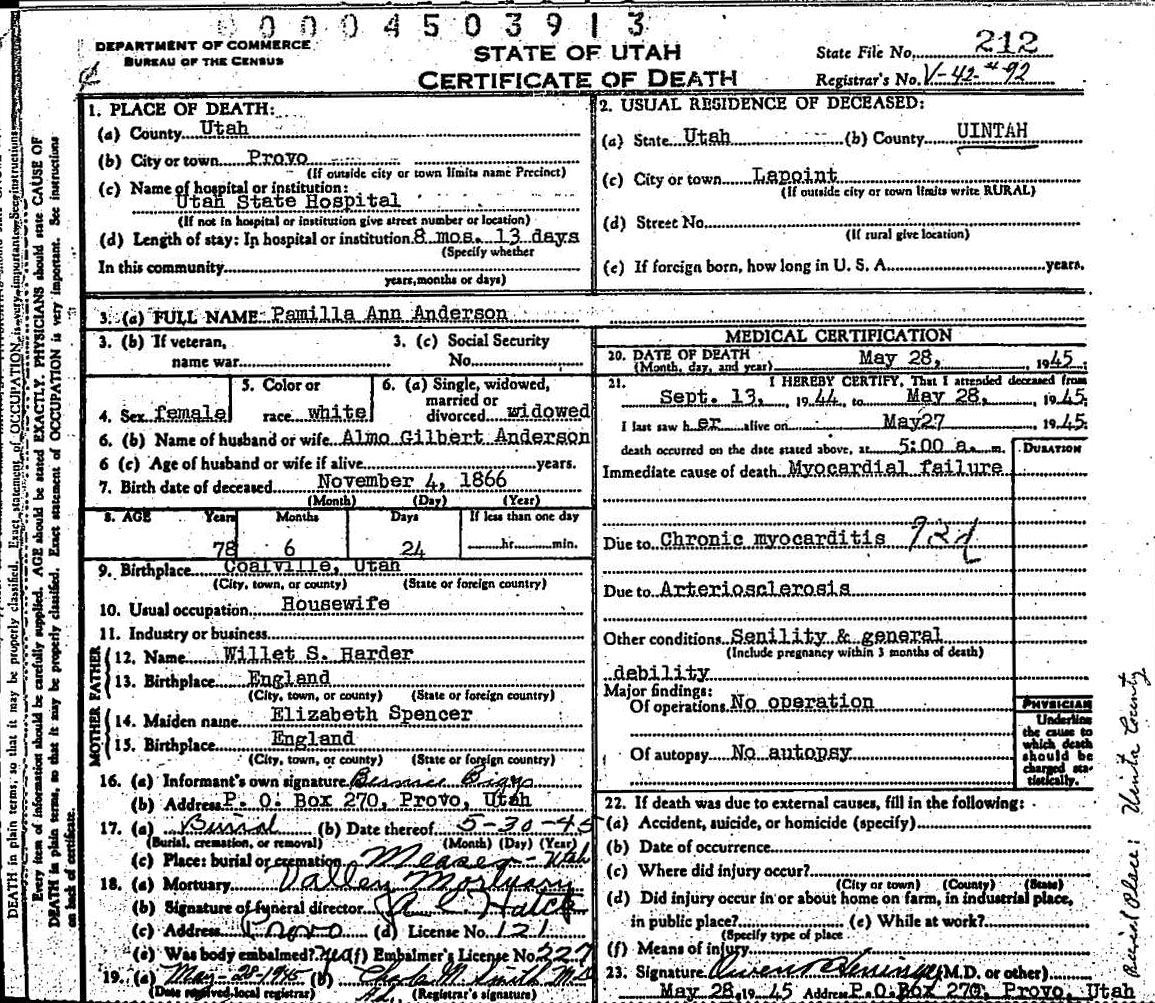 0004503913
DEPARTMENT OF COMMERCE
BUREAU OF THE CENSUS
STATE OF UTAH
CERTIFICATE OF DEATH
State File No. 212
Registrar's No. V-42-#92
1. PLACE OF DEATH:
(a) County Utah
(b) City or town Provo
(If outside city or town limits name Precinct)
(c) Name of hospital or institution:
Utah State Hospital
(If not in hospital or institution give street number or location)
(d) Length of stay: In hospital or institution 8 mos. 13 days
(Specify whether
In this community
years, months or days)
2. USUAL RESIDENCE OF DECEASED:
(a) State Utah (b) County UINTAH
(c) City or town Lapoint
(If outside city or town limits write RURAL)
(d) Street No.
(If rural give location)
(e) If foreign born, how long in U. S. A. years.
3. (a) FULL NAME Pamilla Ann Anderson
3. (b) If veteran, 3. (c) Social Security
name war No.
4. Sex female
5. Color or
race white
6. (a) Single, widowed,
married or
divorced widowed
6. (b) Name of husband or wife Almo Gilbert Anderson
6 (c) Age of husband or wife if alive years.
7. Birth date of deceased November 4, 1866
(Month) (Day) (Year)
8. AGE Years Months Days If less than one day
78 6 24 hr. min.
9. Birthplace Coalville, Utah
(City, town, or county) (State or foreign country)
10. Usual occupation Housewife
11. Industry or business
FATHER
12. Name Willet S. Harder
13. Birthplace England
(City, town, or county) (State or foreign country)
MOTHER
14. Maiden name Elizabeth Spencer
15. Birthplace England
(City, town, or county) (State or foreign country)
16. (a) Informant's own signature Bernice Biggs
(b) Address P. O. Box 270, Provo, Utah
17. (a) Burial (b) Date thereof 5-30-45
(Burial, cremation, or removal) (Month) (Day) (Year)
(c) Place: burial or cremation Measer - Utah
18. (a) Mortuary Valley Mortuary
(b) Signature of funeral director Hatch
(c) Address Provo (d) License No. 121
(e) Was body embalmed? yes (f) Embalmer's License No. 227
19. (a) May-28-1945 (b) Smith M.D.
(Date received local registrar) (Registrar's signature)
MEDICAL CERTIFICATION
20. DATE OF DEATH May 28, 1945.
(Month, day, and year)
21. I HEREBY CERTIFY, That I attended deceased from
Sept. 13, 1944, to May 28, 1945.
I last saw her alive on May27 1945.
death occurred on the date stated above, at 5:00 a. m.
DURATION
Immediate cause of death Myocardial failure
Due to Chronic myocarditis
Due to Arteriosclerosis
Other conditions Senility & general
(Include pregnancy within 3 months of death)
debility
Major findings:
Of operations No operation
Of autopsy No autopsy
PHYSICIAN
Underline
the cause to
which death
should be
charged sta-
tistically.
22. If death was due to external causes, fill in the following:
(a) Accident, suicide, or homicide (specify)
(b) Date of occurrence
(c) Where did injury occur?
(City or town) (County) (State)
(d) Did injury occur in or about home on farm, in industrial place,
in public place? (e) While at work?
(Specify type of place
(f) Means of injury
23. Signature (M.D. or other)
May 28, 1945 Address P.O. Box 270, Provo, Utah
Burial Place: Uinta County
DEATH in plain terms, so that it may be properly classified. Exact statement of OCCUPATION is very important. See instructions
Every item of information should be carefully supplied. AGE should be stated EXACTLY. PHYSICIANS should state CAUSE OF
DEATH in plain terms, so that it may be properly classified. Exact statement of OCCUPATION is very important. See instructions
on back of certificate.